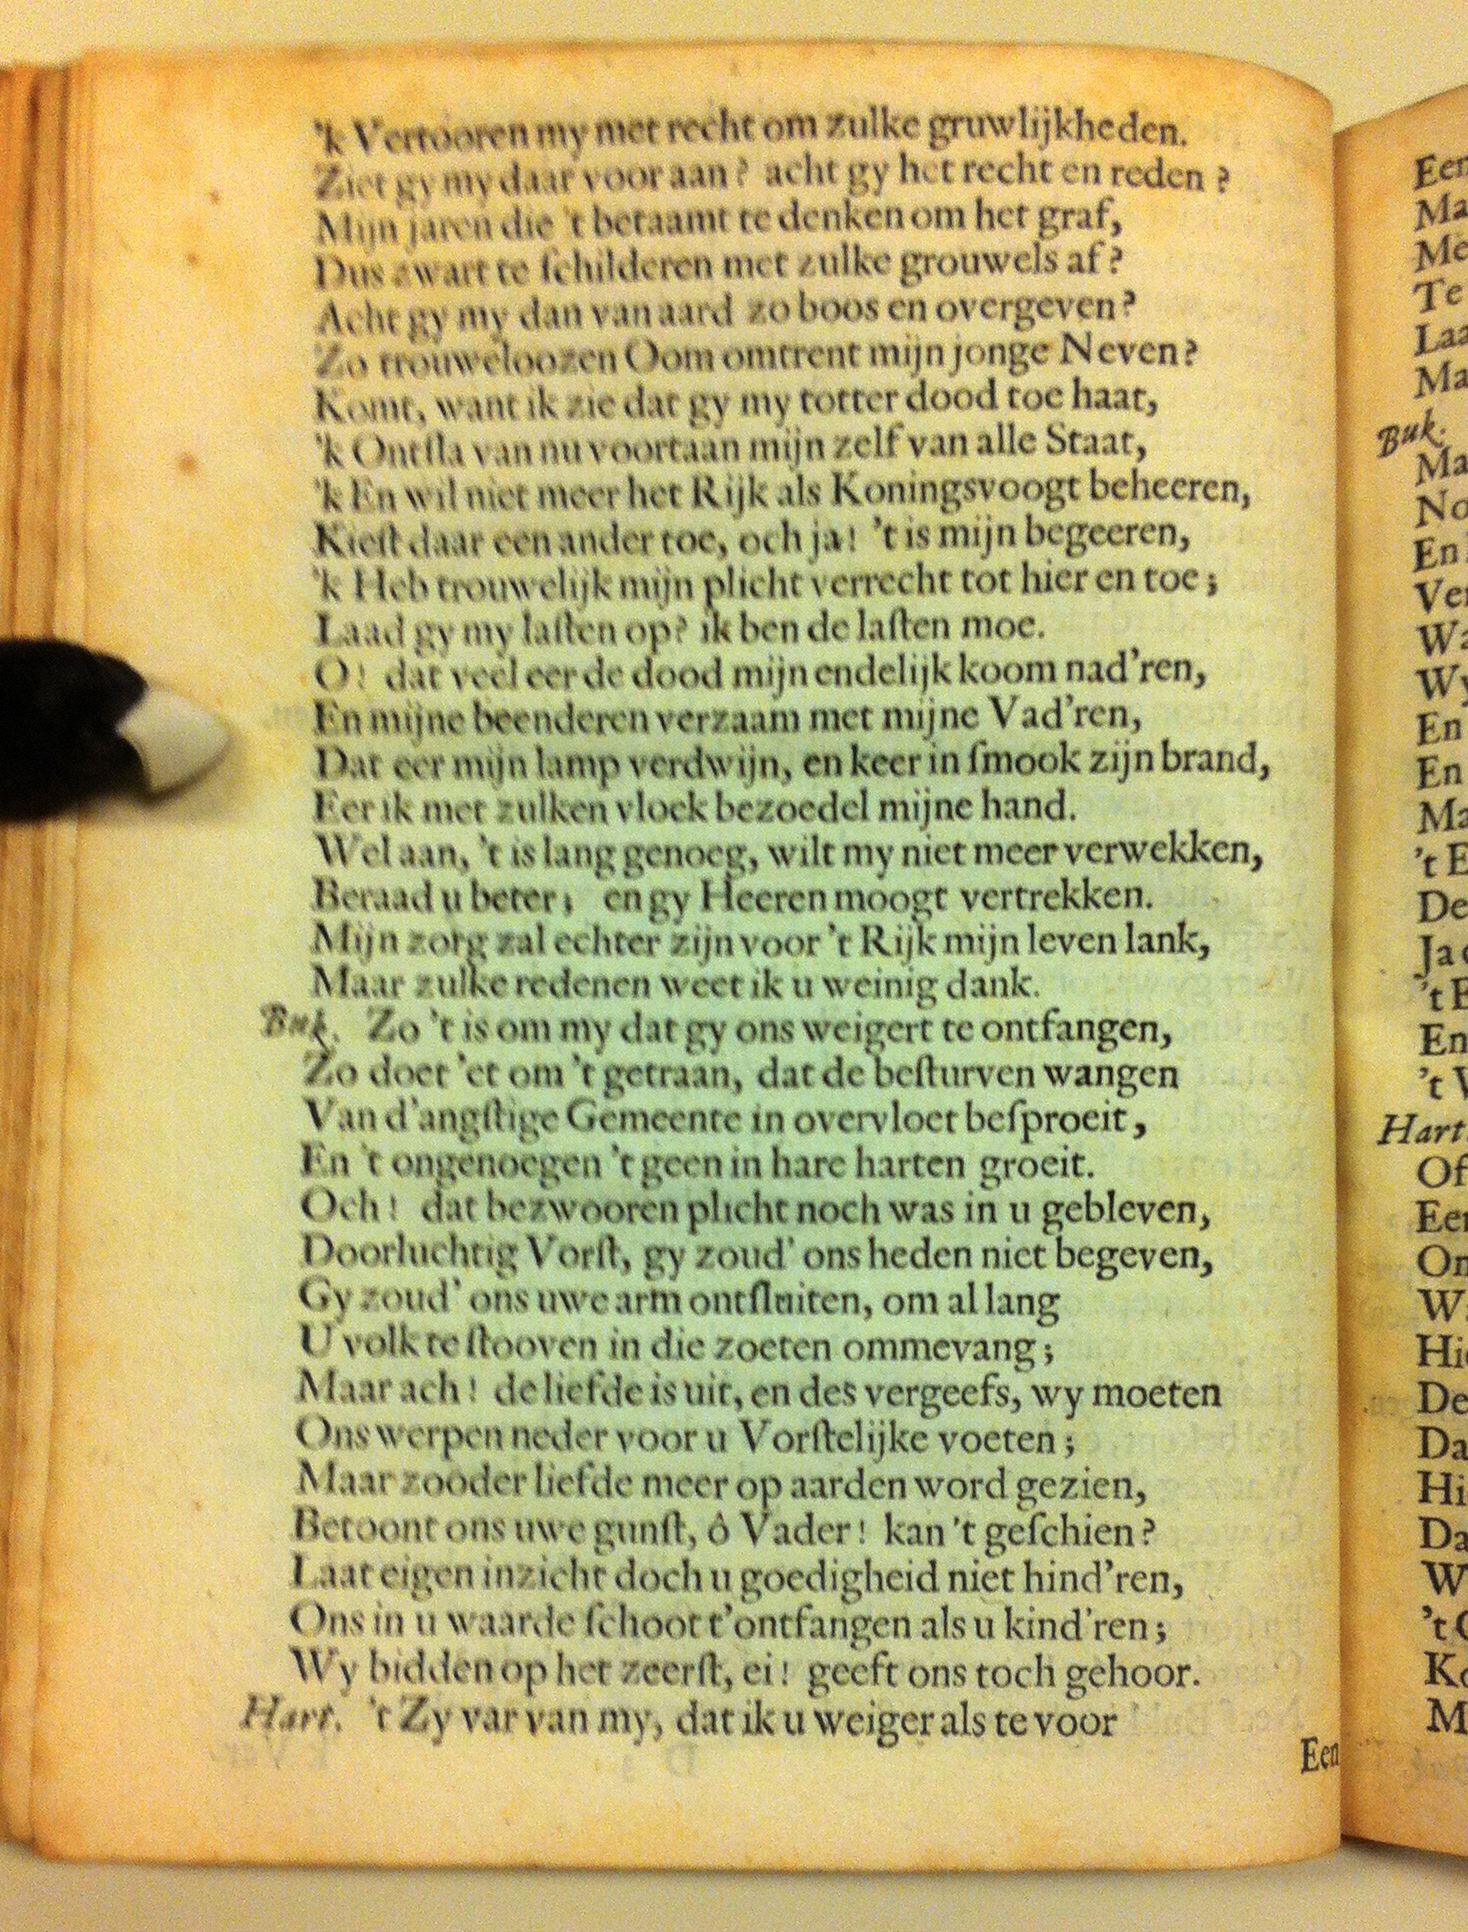 'k Vertooren my met recht om zulke gruwlijkheden.
Ziet gy my daar voor aan? acht gy het recht en reden?
Mijn jaren die 't betaamt te denken om het graf,
Dus zwart te ſchilderen met zulke grouwels af?
Acht gy my dan van aard zo boos en overgeven?
Zo trouweloozen Oom omtrent mijn jonge Neven?
Komt, want ik zie dat gy my totter dood toe haat,
'k Ontſla van nu voortaan mijn zelf van alle Staat,
'k En wil niet meer het Rijk als Koningsvoogt beheeren,
Kieſt daar een ander toe, och ja! 't is mijn begeeren,
'k Heb trouwelijk mijn plicht verrecht tot hier en toe;
Laad gy my laſten op? ik ben de laſten moe.
O! dat veel eer de dood mijn endelijk koom nad'ren,
En mijne beenderen verzaam met mijne Vad'ren,
Dat eer mijn lamp verdwijn, en keer in ſmook zijn brand,
Eer ik met zulken vloek bezoedel mijne hand.
Wel aan, 't is lang genoeg, wilt my niet meer verwekken,
Beraad u beter; en gy Heeren moogt vertrekken.
Mijn zorg zal echter zijn voor 't Rijk mijn leven lank,
Maar zulke redenen weet ik u weinig dank.
Buk. Zo 't is om my dat gy ons weigert te ontfangen,
Zo doet 'et om 't getraan, dat de beſturven wangen
Van d'angſtige Gemeente in overvloet beſproeit,
En 't ongenoegen 't geen in hare harten groeit.
Och! dat bezwooren plicht noch was in u gebleven,
Doorluchtig Vorſt, gy zoud' ons heden niet begeven,
Gy zoud' ons uwe arm ontſluiten, om al lang
U volk te ſtooven in die zoeten ommevang;
Maar ach! de liefde is uit, en des vergeefs, wy moeten
Ons werpen neder voor u Vorſtelijke voeten;
Maar zo oder liefde meer op aarden word gezien,
Betoont ons uwe gunſt, ô Vader! kan 't geſchien?
Laat eigen inzicht doch u goedigheid niet hind'ren,
Ons in u waarde ſchoot t'ontfangen als u kind'ren;
Wy bidden op het zeerſt, ei! geeft ons toch gehoor.
Hart. 't Zy var van my, dat ik u weiger als te voor
Een
Een
Ma
Me
Te
Laa
Ma
Buk.
Ma
No
En
Ver
Wa
Wy
En
En
Ma
't E
De
Ja
't E
En
't V
Hart.
Of
Een
On
W
Hi
De
Da
Hi
Da
W
't
M